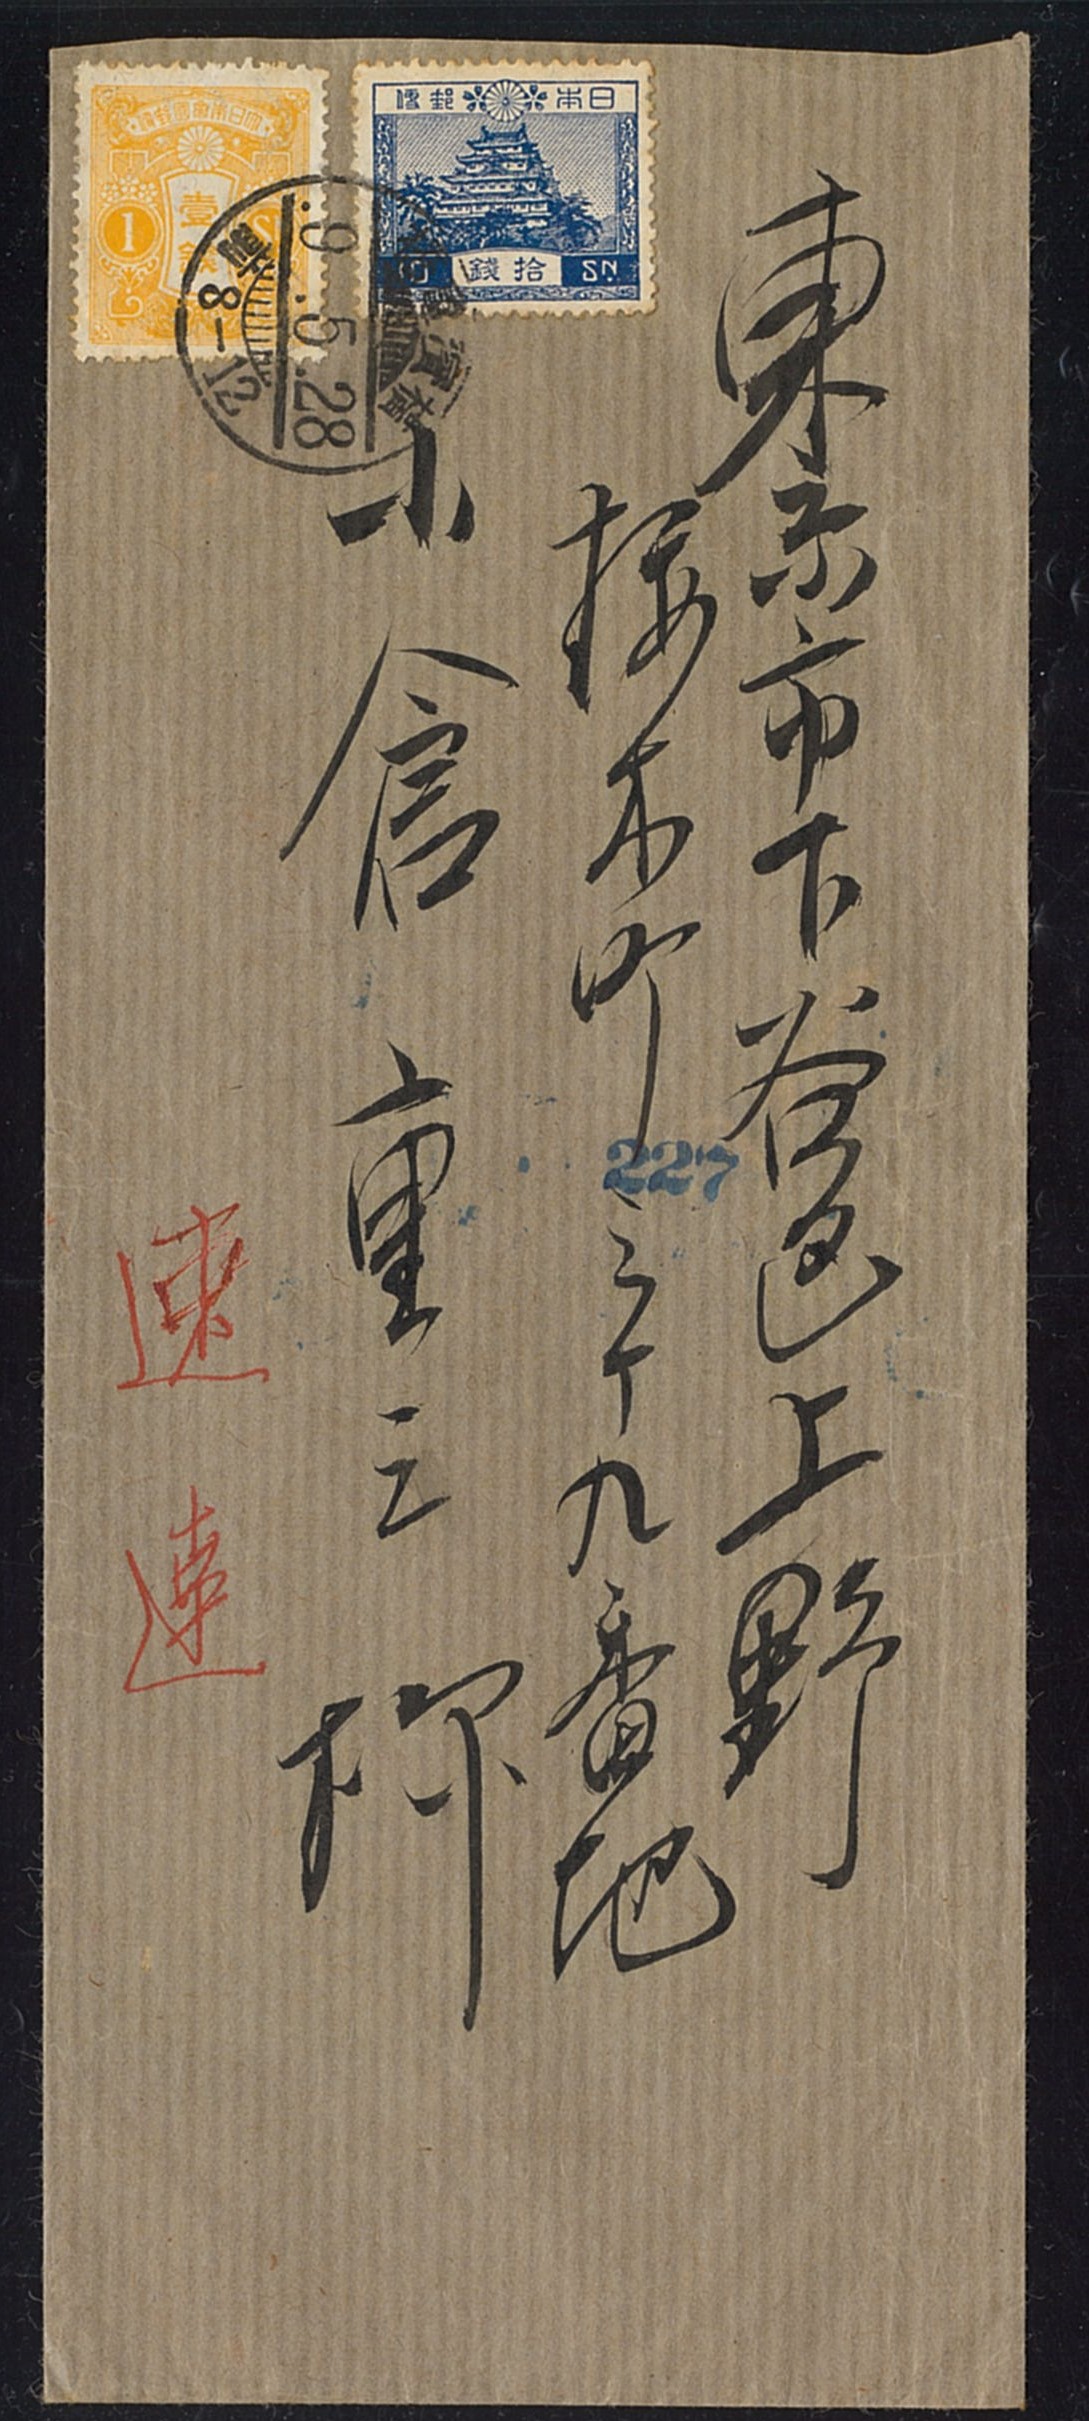 大日本帝國郵便
壹錢
1
日本郵便
10 拾錢 SN
9.5.28
前 8-12
東京市下谷區上野
櫻木町三十九番地
227
小倉重三様
速達